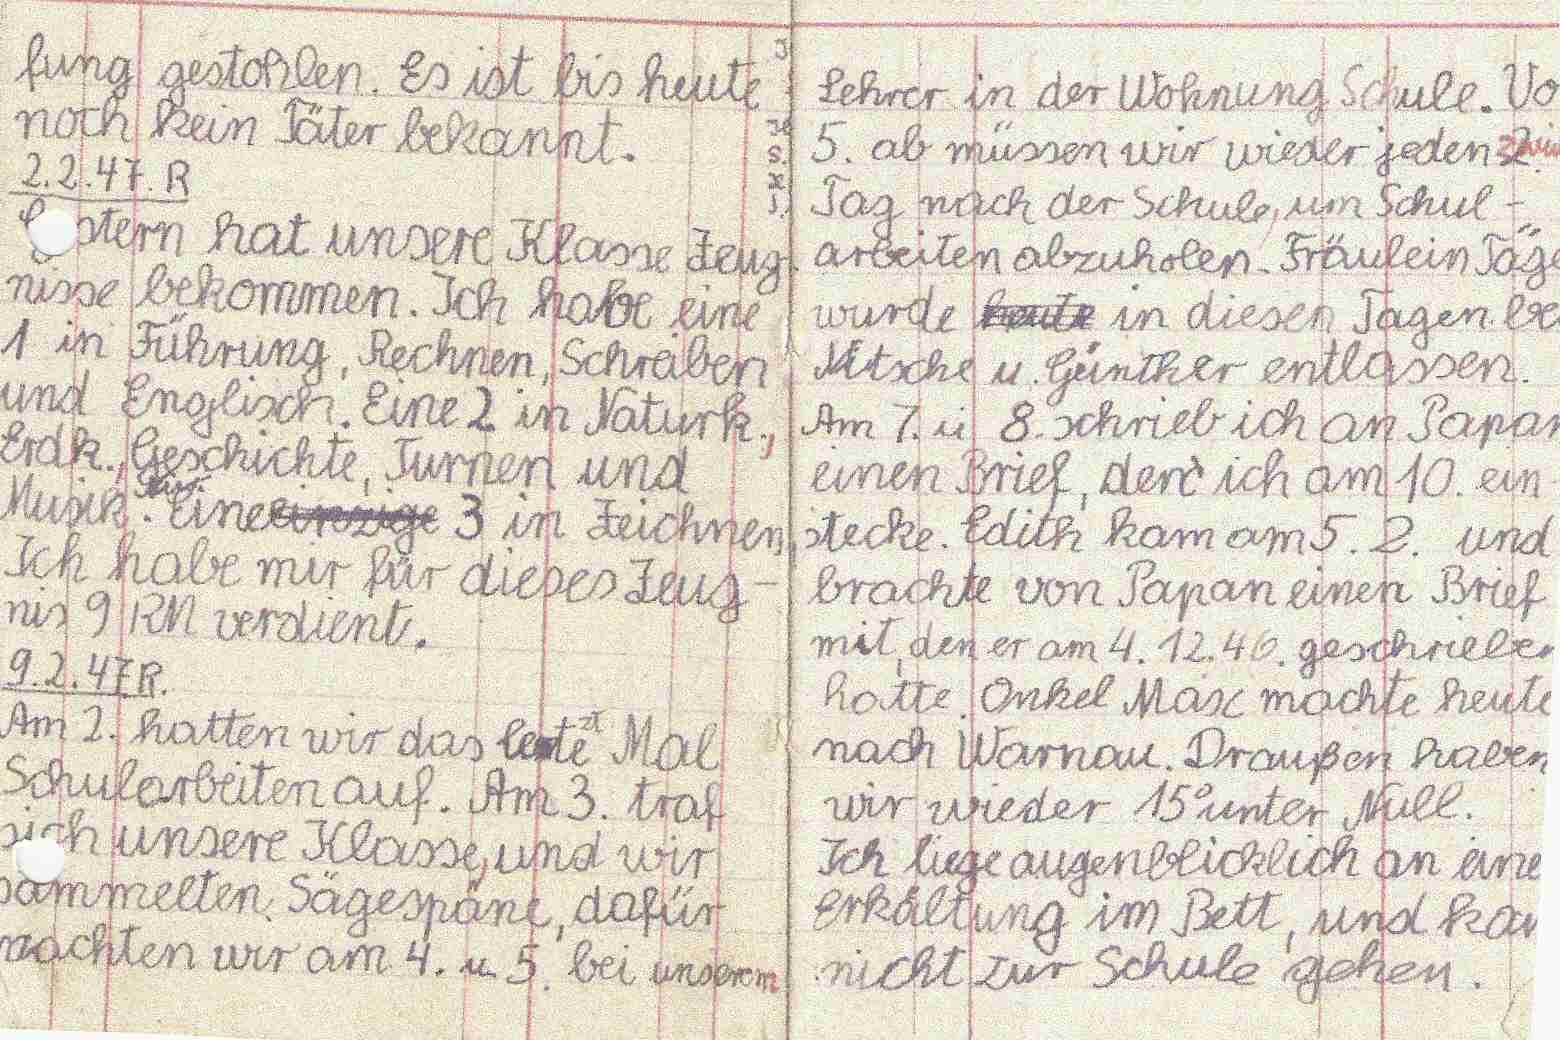 fung gestohlen. Es ist bis heute
noch kein Täter bekannt.
2.2.47. R
stern hat unsere Klasse Zeug
nisse bekommen. Ich habe eine
1 in Führung, Rechnen, Schreiben
und Englisch. Eine 2 in Naturk.,
Erdk., Geschichte, Turnen und
Musik. Eine einzige 3 in Zeichnen,
Ich habe mir für dieses Zeug-
nis 9 RM verdient.
9.2.47 R.
Am 2. hatten wir das letzte Mal
Schularbeiten auf. Am 3. traf
sich unsere Klasse, und wir
sammelten Sägespäne, dafür
machten wir am 4. u 5. bei unserem
Lehrer in der Wohnung Schule. Vo
5. ab müssen wir wieder jeden
Tag nach der Schule, um Schul-
arbeiten abzuholen. Fräulein Jäge
wurde heute in diesen Tagen be
Nitsche u. Günther entlassen.
Am 7. u 8. schrieb ich an Papan
einen Brief, den ich am 10. ein
stecke. Edith kam am 5. 2. und
brachte von Papan einen Brief
mit, den er am 4.12.46. geschrieben
hatte. Onkel Max machte heute
nach Warnau. Draußen haben
wir wieder 15° unter Null.
Ich liege augenblicklich an eine
Erkältung im Bett, und kan
nicht zur Schule gehen.